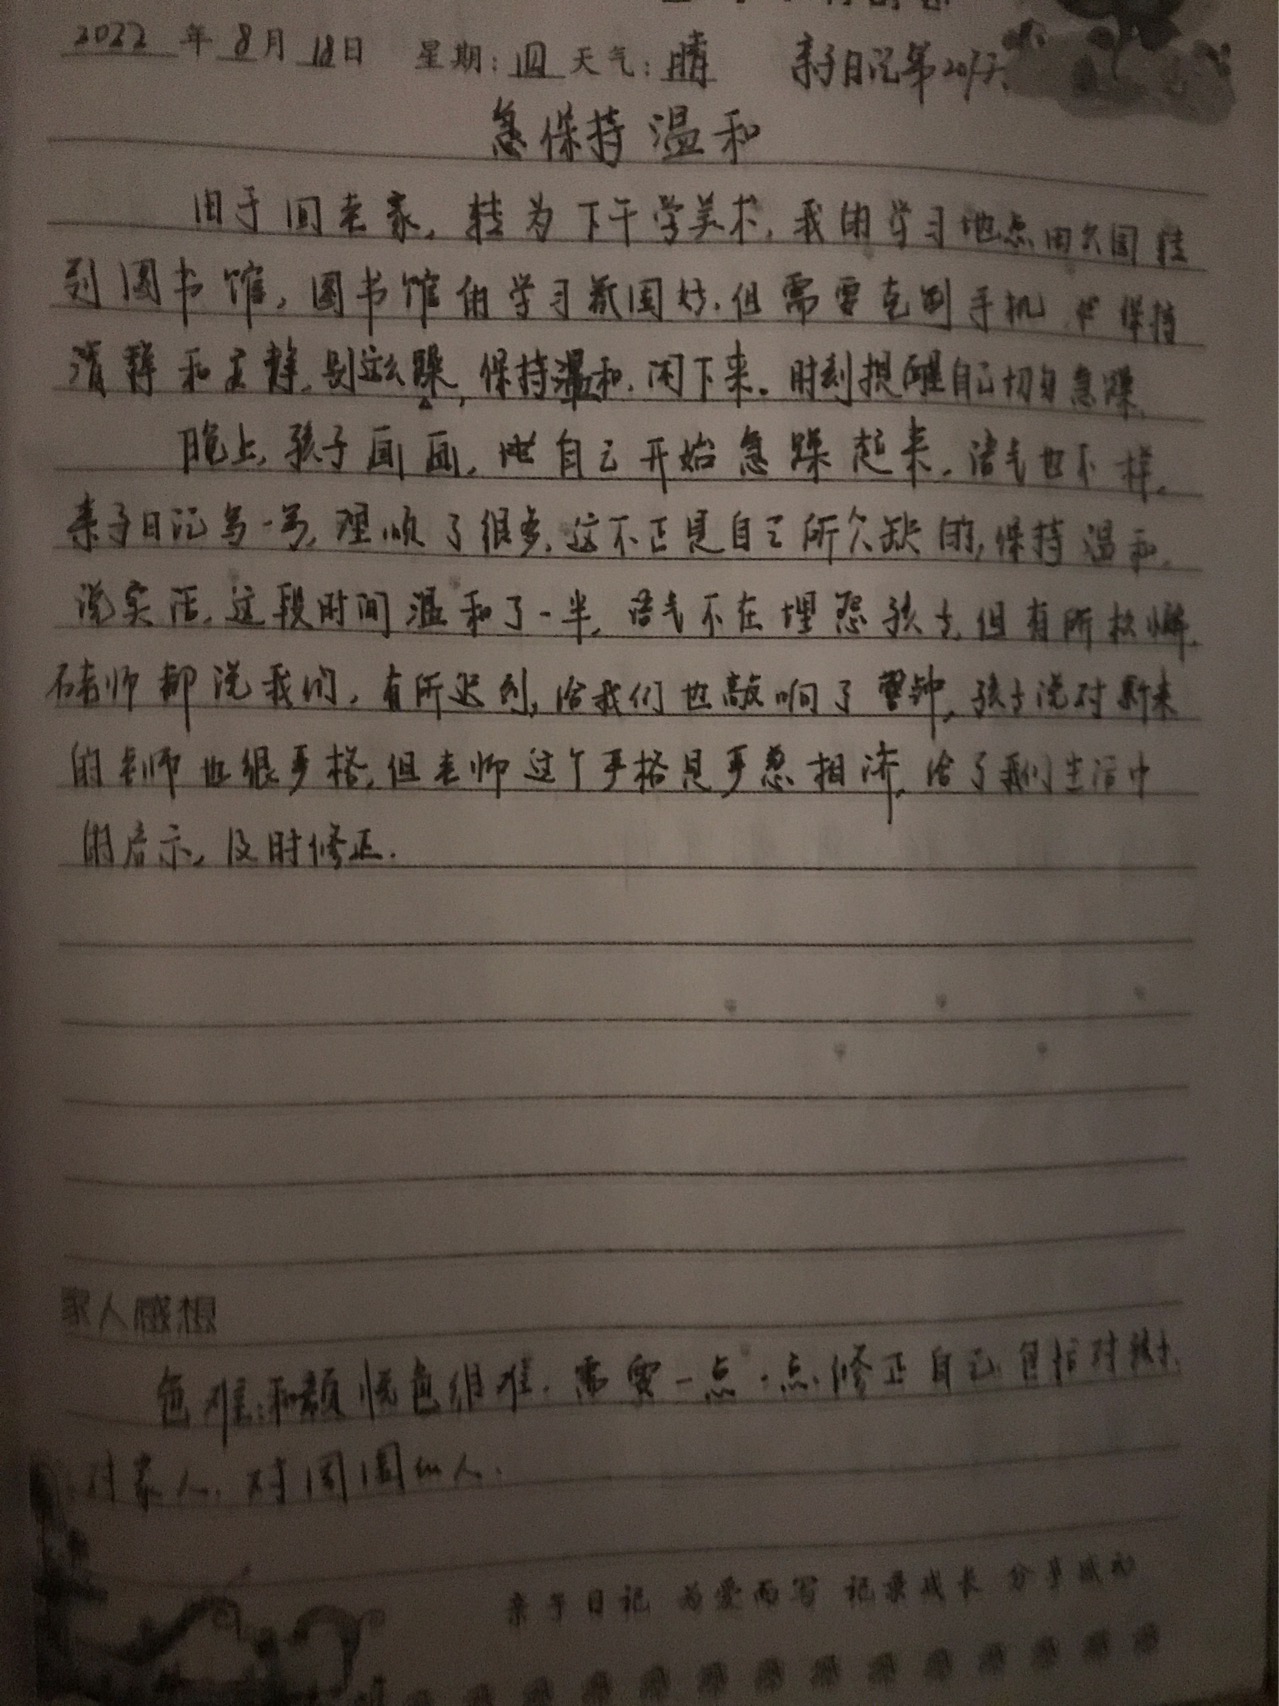 2022 年 8 月 18 日 星期: 四 天气: 晴 亲子日记第2017
急保持温和
由于回老家,转为下午学美术,我的学习地点由公园转
到图书馆,图书馆的学习氛围好,但需要克制手机,保持
清静和安静,别这么躁,保持温和,闲下来。时刻提醒自己切勿急躁,
晚上,孩子画画,她自己开始急躁起来,语气也不一样,
亲子日记写一写,理顺了很多,这不正是自己所欠缺的,保持温和,
说实话,这段时间温和了一半,语气不在埋怨孩子,但有所松懈,
老师都说我们,有所迟到,给我们也敲响了警钟,孩子说对新来
的老师也很严格,但老师这个严格是严慈相济,给了我们生活中
的启示,及时修正.
家人感想
色难:和颜悦色很难,需要一点一点修正自己,包括对孩子,
对家人,对周围的人.
亲子日记 为爱而写 记录成长 分享成功